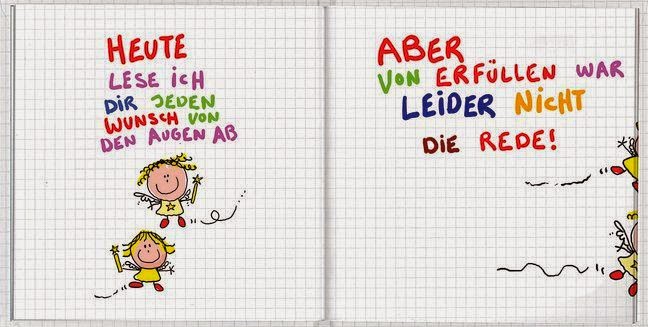 HEUTE
LESE ICH
DIR JEDEN
WUNSCH VON
DEN AUGEN AB
ABER
VON ERFÜLLEN WAR
LEIDER NICHT
DIE REDE!